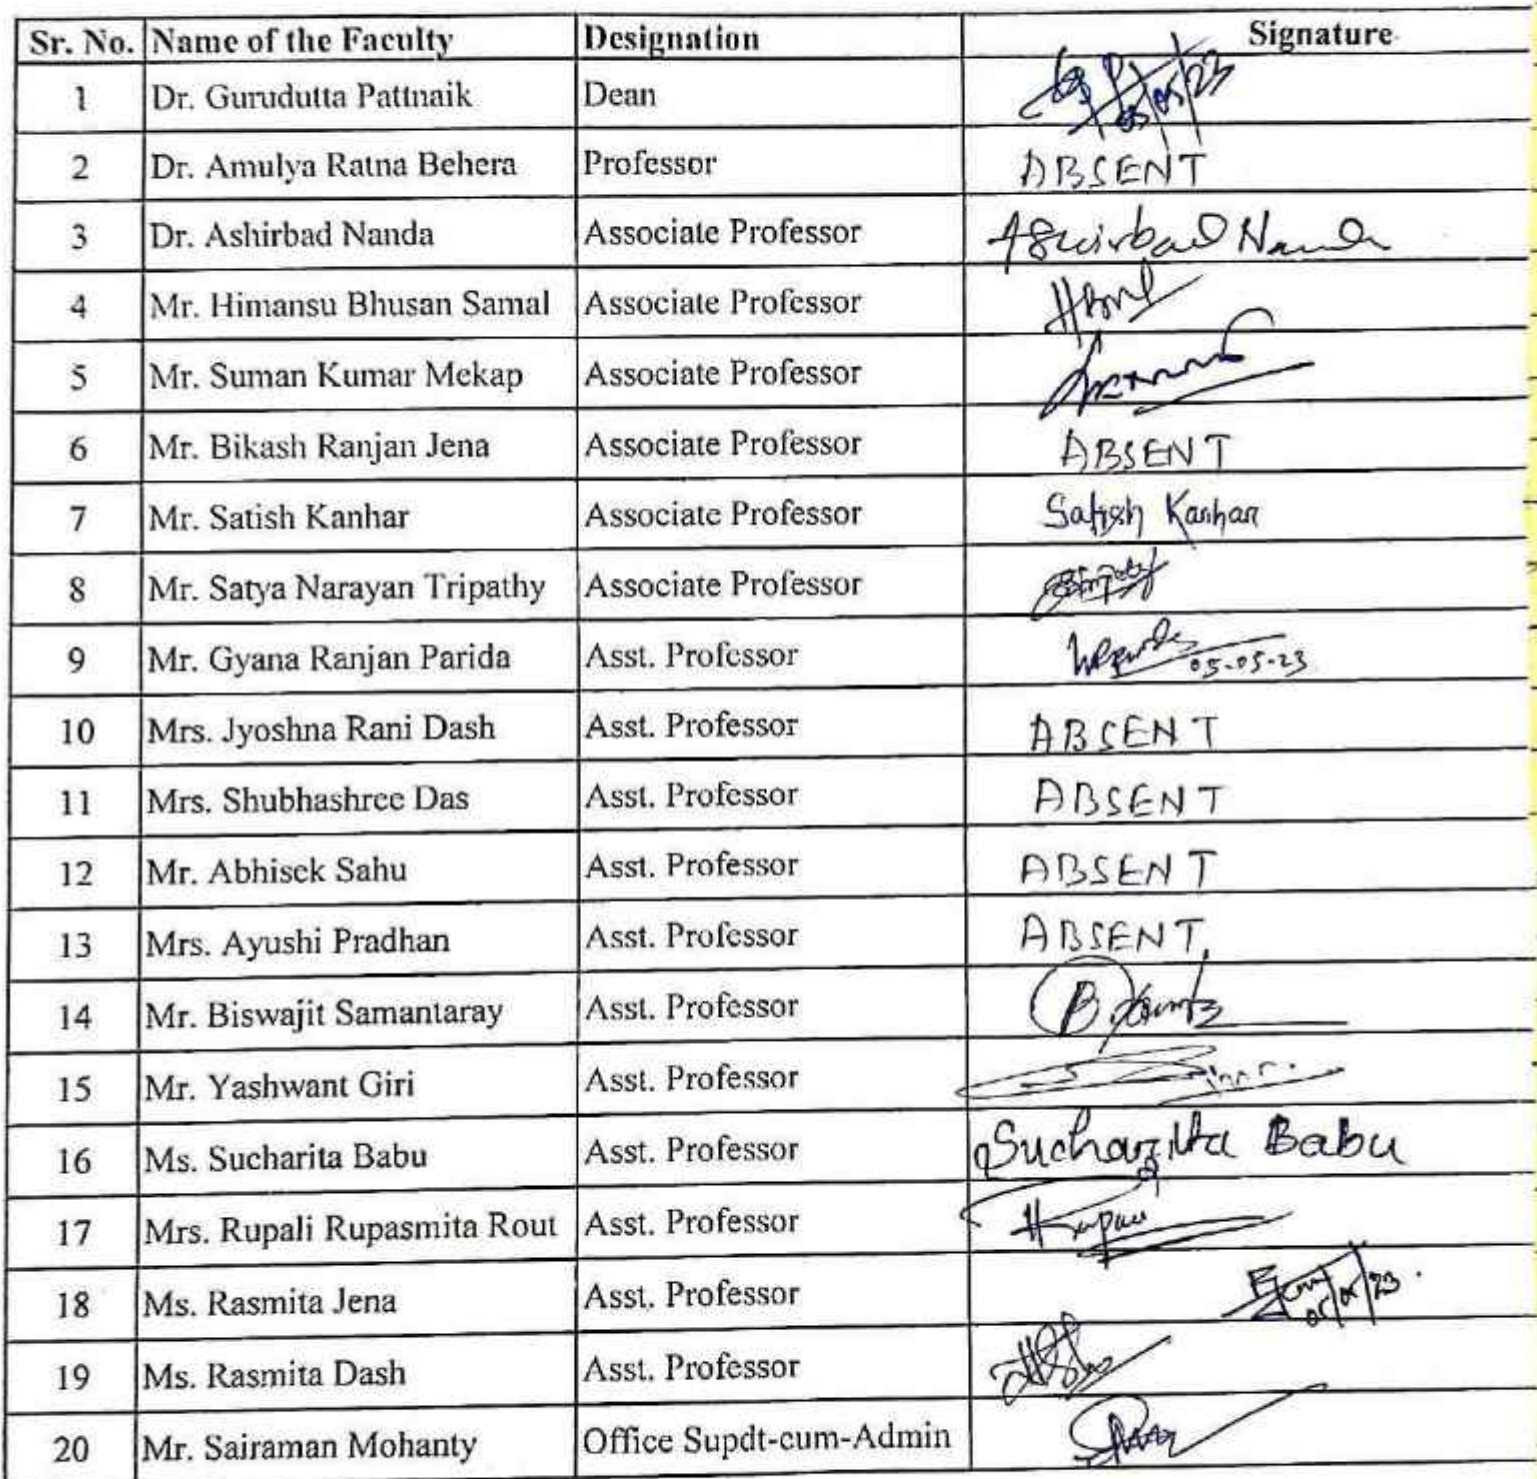 Sr. No. Name of the Faculty Designation Signature
1 Dr. Gurudutta Pattnaik Dean 05/05/23
2 Dr. Amulya Ratna Behera Professor ABSENT
3 Dr. Ashirbad Nanda Associate Professor Ashirbad Nanda
4 Mr. Himansu Bhusan Samal Associate Professor
5 Mr. Suman Kumar Mekap Associate Professor
6 Mr. Bikash Ranjan Jena Associate Professor ABSENT
7 Mr. Satish Kanhar Associate Professor Satish Kanhar
8 Mr. Satya Narayan Tripathy Associate Professor
9 Mr. Gyana Ranjan Parida Asst. Professor 05-05-23
10 Mrs. Jyoshna Rani Dash Asst. Professor ABSENT
11 Mrs. Shubhashree Das Asst. Professor ABSENT
12 Mr. Abhisek Sahu Asst. Professor ABSENT
13 Mrs. Ayushi Pradhan Asst. Professor ABSENT
14 Mr. Biswajit Samantaray Asst. Professor
15 Mr. Yashwant Giri Asst. Professor
16 Ms. Sucharita Babu Asst. Professor Sucharita Babu
17 Mrs. Rupali Rupasmita Rout Asst. Professor
18 Ms. Rasmita Jena Asst. Professor 05/05/23
19 Ms. Rasmita Dash Asst. Professor
20 Mr. Sairaman Mohanty Office Supdt-cum-Admin